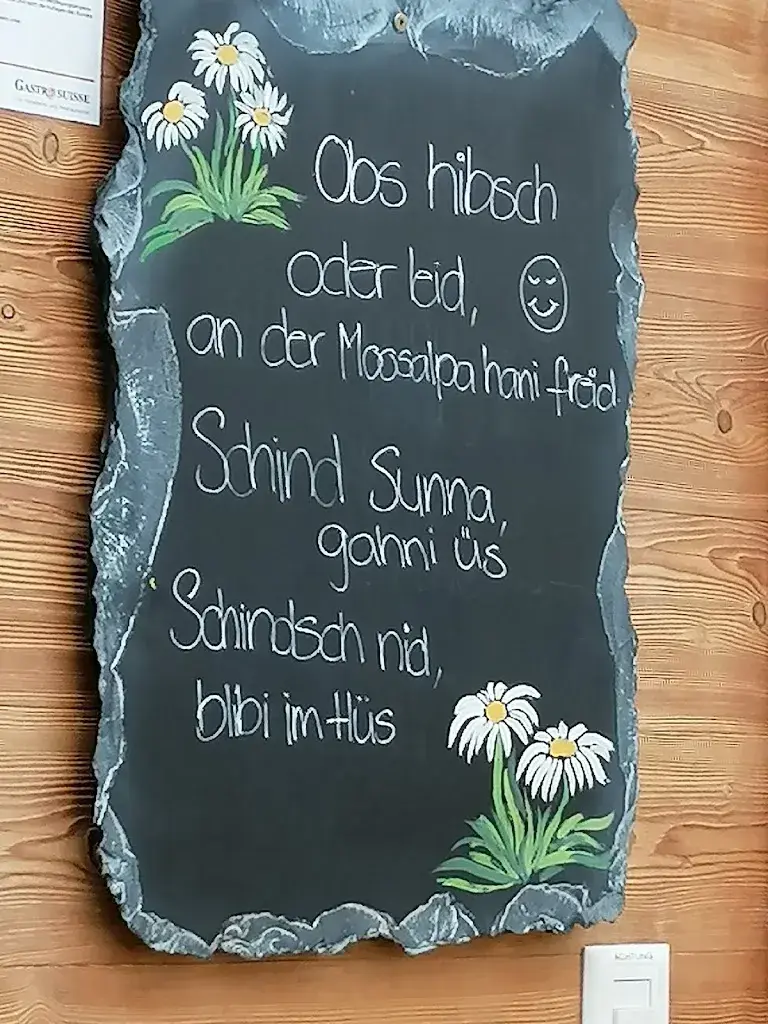 GASTROSUISSE
Obs hibsch
oder leid,
an der Moosalpa hani freid.
Schind Sunna,
gahni üs
Schindsch nid,
blibi im Hüs
ACHTUNG